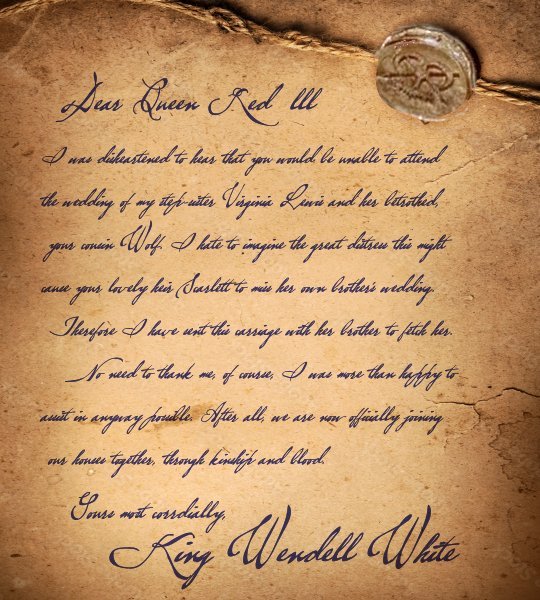 Dear Queen Red III
I was disheartened to hear that you would be unable to attend
the wedding of my step-sister Virginia Lewis and her betrothed,
your cousin Wolf. I hate to imagine the great distress this might
cause your lovely heir Scarlett to miss her own brother's wedding.
Therefore I have sent this carriage with her brother to fetch her.
No need to thank me, of course, I was more than happy to
assist in anyway possible. After all, we are now officially joining
our houses together, through kinship and blood.
Yours most corrdially,
King Wendell White